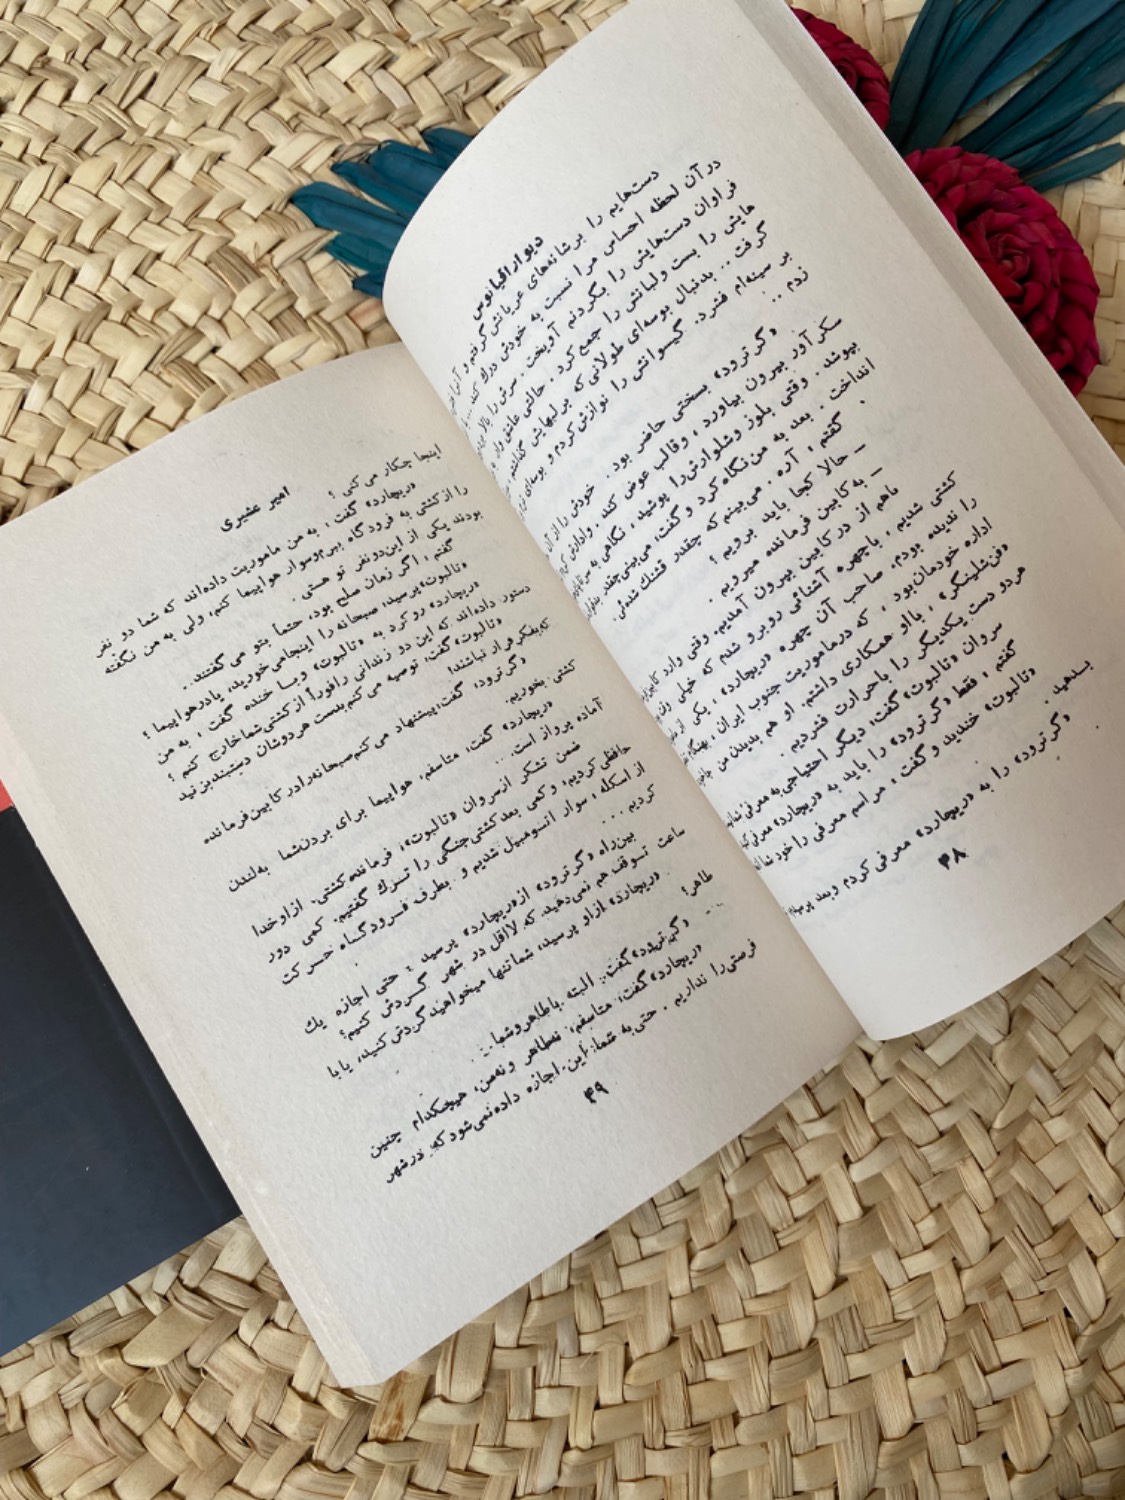 دیوار اقیانوس
دست‌هایم را بر شانه‌های عریانش گرفتم و
در آن لحظه احساس مرا نسبت به خودش درك كند...
فراوان دست‌هایش را بگردنم آویخت. سرش را بالا
هایش را بست ولبانش را جمع کرد. حالتی عاشق وار
گرفت.. بدنبال بوسه‌ای طولانی که بر لبهایش گذاشتم،
بر سینه‌ام فشرد. گیسوانش را نوازش کردم و بوسه‌ای
زدم..
«گرترود» بسختی حاضر بود. خودش را از آن
سکرآور بیرون بیاورد، وقالب عوض کند. وادارش کردم
بپوشد. وقتی بلوز وشلوارش را پوشید، نگاهی به سرتاپای
انداخت. بعد به من نگاه کرد و گفت، می‌بینی چقدر
گفتم، آره. می‌بینم که چقدر قشنگ شده‌ئی.
ـ حالا کجا باید برویم؟
ـ به کابین فرمانده میرویم.
باهم از در کابین بیرون آمدیم. وقتی وارد کابین
کشتی شدیم، باچهره آشنائی روبرو شدم که خیلی وقت
را ندیده بودم. صاحب آن چهره «ریچارد»، یکی از
اداره خودمان بود، که درماموریت جنوب ایران،
«فن‌شلینگر»، بااو همکاری داشتم. او هم بدیدن من
هردو دست یکدیگر را باحرارت فشردیم.
سروان «تالبوت» گفت، دیگر احتیاجی به معرفی
گفتم، فقط «گرترود» را باید به «ریچارد» معرفی
«تالبوت» خندید و گفت، مراسم معرفی را خود شما
بدهید.
«گرترود» را به «ریچارد» معرفی کردم وبعد پرسیدم،
۴۸
امیر عشیری
اینجا چکار می‌کنی؟
«ریچارد» گفت، به من ماموریت داده‌اند که شما دو نفر
را ازکشتی به فرودگاه ببرم وسوار هواپیما کنم، ولی به من نگفته
بودند یکی از این دونفر تو هستی.
گفتم، اگر زمان صلح بود، حتماً بتو می گفتند.
«تالبوت» پرسید، صبحانه را اینجا می‌خورید، یادرهواپیما؟
«ریچارد» روکرد به «تالبوت» وبا خنده گفت، به من
دستور داده‌اند که این دو زندانی رافوراً ازکشتی شما خارج کنم؟
«تالبوت» گفت، توصیه می‌کنم بدست هردوشان دستبند بزنید
که بفکر فرار نباشند!
«گرترود» گفت، پیشنهاد می‌کنم صبحانه رادر کابین فرمانده
کشتی بخوریم.
«ریچارد» گفت، متاسفم، هواپیما برای بردن شما به لندن
آماده پرواز است...
ضمن تشکر ازسروان «تالبوت»، فرمانده کشتی، ازاو خدا
حافظی کردیم، و کمی بعد کشتی جنگی را تـرك گفتیم. کمی دور
از اسکله، سوار اتـومبیل شدیم و بطرف فـرودگـاه حـرکت
کردیم...
بین‌راه «گرترود» از «ریچارد» پرسید، حتی اجازه یك
ساعت توقف هم نمی‌دهید، که لااقل در شهر گـردش کنیم؟
«ریچارد» ازاو پرسید، شما تنها میخواهید گردش کنید، یا با
طاهر؟
«گرترود» گفت، البته با طاهر وشما...
«ریچارد» گفت، متاسفم، نه‌طاهر ونه‌من، هیچکدام چنین
فرصتی را نداریم. حتی به شما این اجازه داده نمی‌شود که درشهر
۴۹